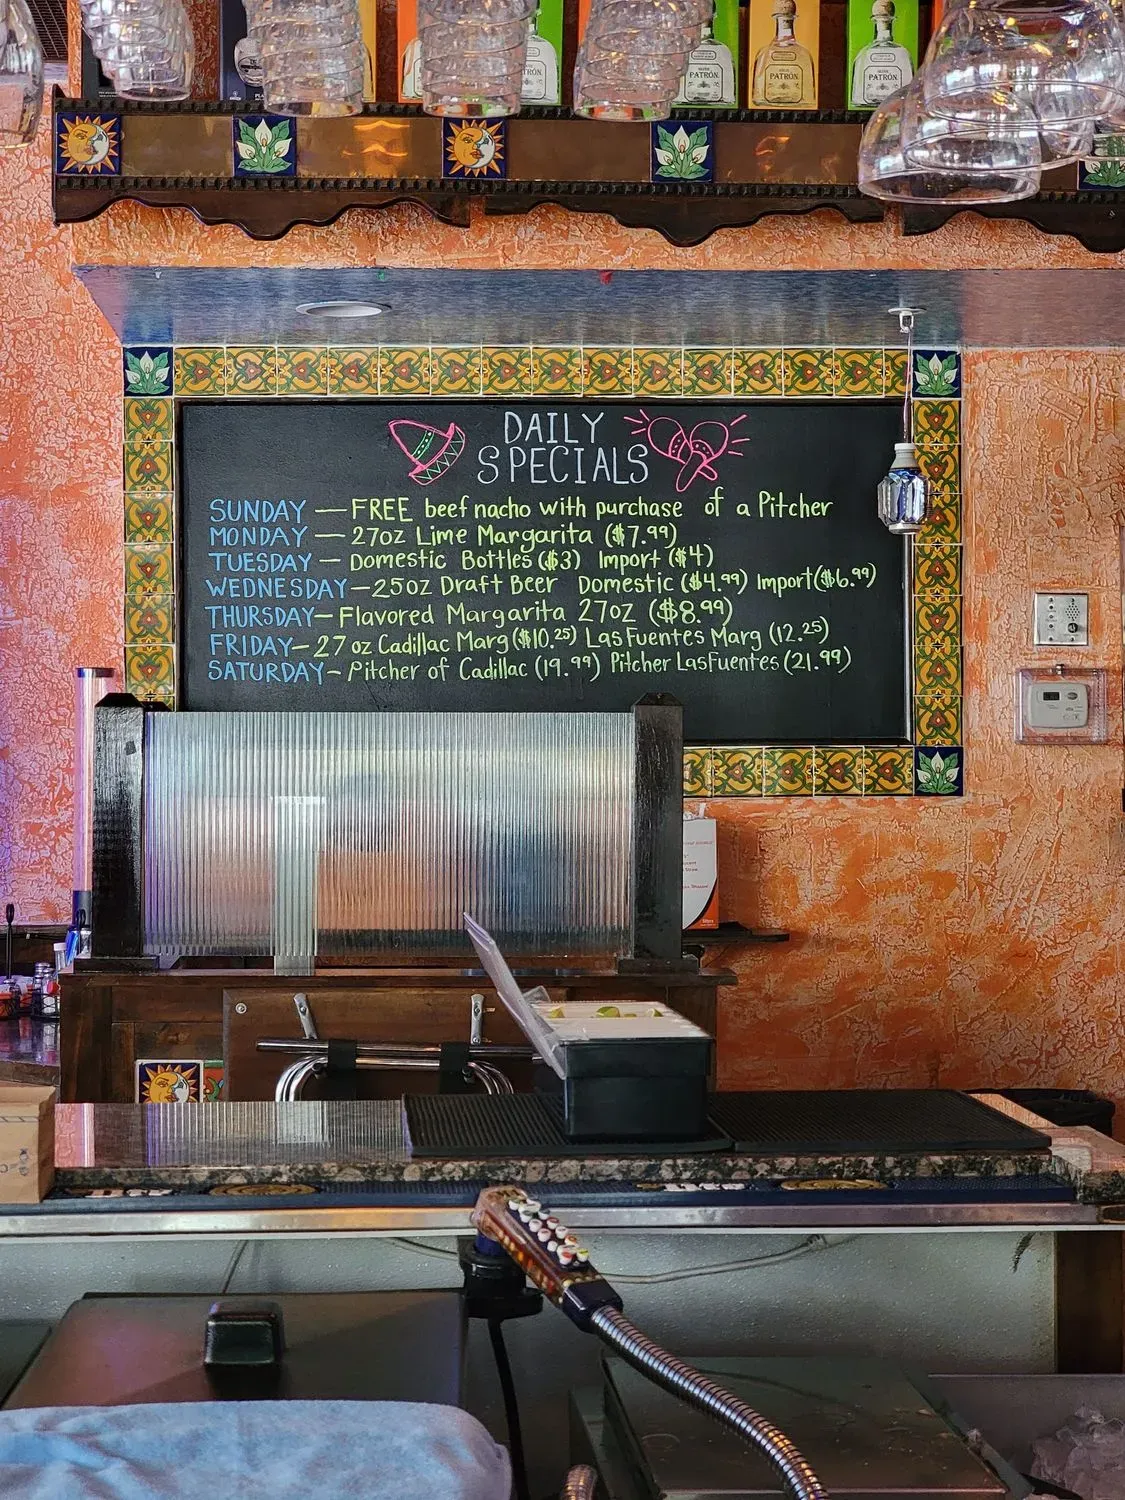 PATRÓN
PATRÓN
PATRÓN
PATRÓN
DAILY
SPECIALS
SUNDAY — FREE beef nacho with purchase of a Pitcher
MONDAY — 27oz Lime Margarita ($7.99)
TUESDAY — Domestic Bottles ($3) Import ($4)
WEDNESDAY — 25oz Draft Beer Domestic ($4.99) Import ($6.99)
THURSDAY — Flavored Margarita 27oz ($8.99)
FRIDAY — 27 oz Cadillac Marg ($10.25) Las Fuentes Marg (12.25)
SATURDAY — Pitcher of Cadillac (19.99) Pitcher Las Fuentes (21.99)